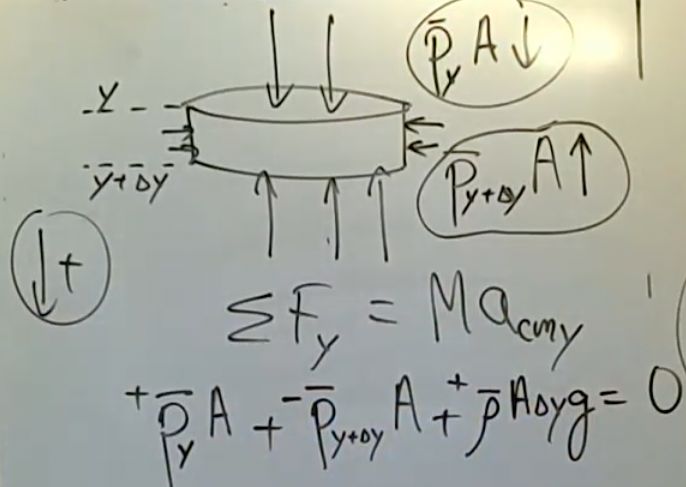 y
P̄_y A ↓
y+Δy
P̄_{y+Δy} A ↑
↓+
ΣF_y = Ma_{cmy}
+P̄_y A + -P̄_{y+Δy} A + +ρ̄AΔyg = 0